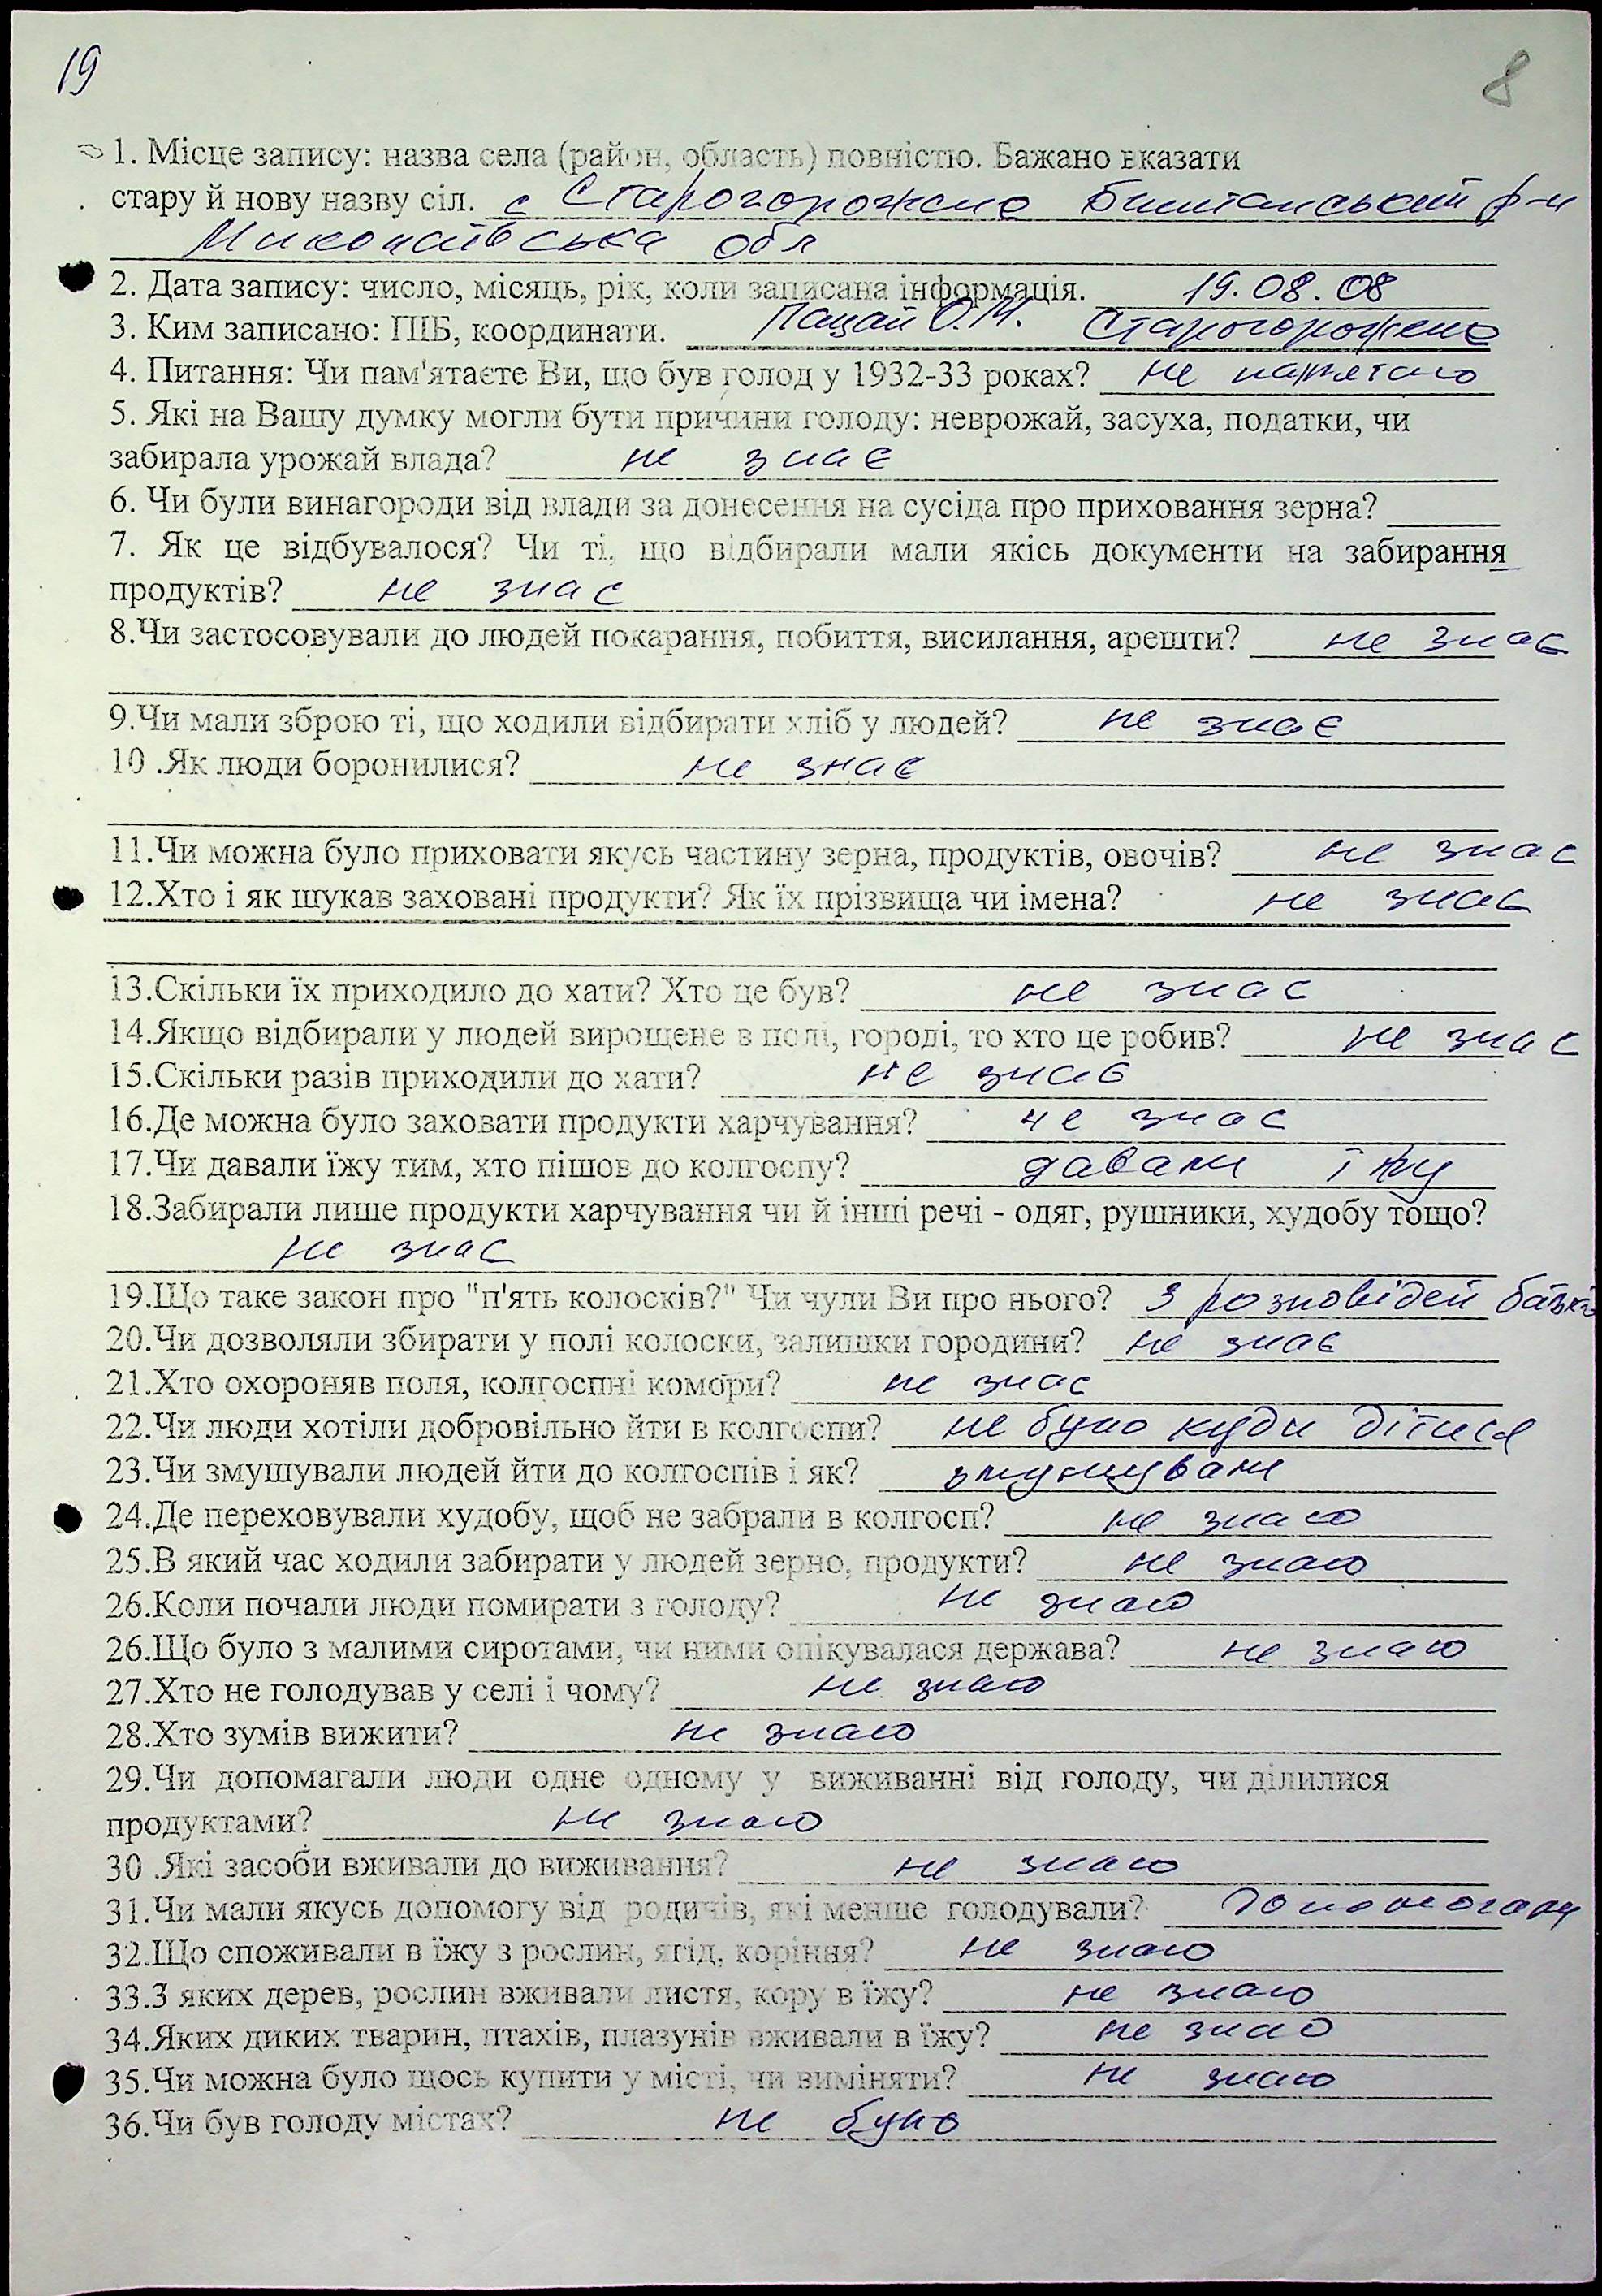 19
8
1. Місце запису: назва села (район, область) повністю. Бажано вказати
стару й нову назву сіл. с Старогорожено Баштанський р-н
Миколаївська обл
2. Дата запису: число, місяць, рік, коли записана інформація. 19.08.08
3. Ким записано: ПІБ, координати. Пацай О.М. Старогорожено
4. Питання: Чи пам'ятаєте Ви, що був голод у 1932-33 роках? не пам'ятаю
5. Які на Вашу думку могли бути причини голоду: неврожай, засуха, податки, чи
забирала урожай влада? не знає
6. Чи були винагороди від влади за донесення на сусіда про приховання зерна?
7. Як це відбувалося? Чи ті, що відбирали мали якісь документи на забирання
продуктів? не знає
8.Чи застосовували до людей покарання, побиття, висилання, арешти? не знає
9.Чи мали зброю ті, що ходили відбирати хліб у людей? не знає
10 .Як люди боронилися? не знає
11.Чи можна було приховати якусь частину зерна, продуктів, овочів? не знає
12.Хто і як шукав заховані продукти? Як їх прізвища чи імена? не знає
13.Скільки їх приходило до хати? Хто це був? не знає
14.Якщо відбирали у людей вирощене в полі, городі, то хто це робив? не знає
15.Скільки разів приходили до хати? не знає
16.Де можна було заховати продукти харчування? не знає
17.Чи давали їжу тим, хто пішов до колгоспу? давали їжу
18.Забирали лише продукти харчування чи й інші речі - одяг, рушники, худобу тощо?
не знає
19.Що таке закон про "п'ять колосків?" Чи чули Ви про нього? З розповідей батьків
20.Чи дозволяли збирати у полі колоски, залишки городини? не знає
21.Хто охороняв поля, колгоспні комори? не знає
22.Чи люди хотіли добровільно йти в колгоспи? не було куди дітися
23.Чи змушували людей йти до колгоспів і як? змушували
24.Де переховували худобу, щоб не забрали в колгосп? не знаю
25.В який час ходили забирати у людей зерно, продукти? не знаю
26.Коли почали люди помирати з голоду? не знаю
26.Що було з малими сиротами, чи ними опікувалася держава? не знаю
27.Хто не голодував у селі і чому? не знаю
28.Хто зумів вижити? не знаю
29.Чи допомагали люди одне одному у виживанні від голоду, чи ділилися
продуктами? не знаю
30 .Які засоби вживали до виживання? не знаю
31.Чи мали якусь допомогу від родичів, які менше голодували? допомогали
32.Що споживали в їжу з рослин, ягід, коріння? не знаю
33.З яких дерев, рослин вживали листя, кору в їжу? не знаю
34.Яких диких тварин, птахів, плазунів вживали в їжу? не знаю
35.Чи можна було щось купити у місті, чи виміняти? не знаю
36.Чи був голоду містах? не було